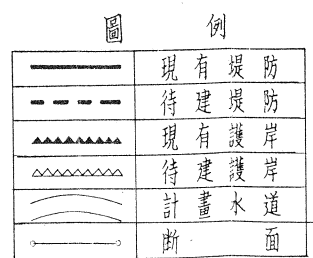 圖例
現有堤防
待建堤防
現有護岸
待建護岸
計畫水道
斷面